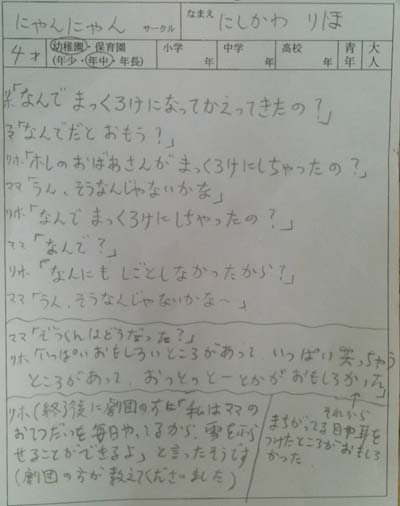 にゃんにゃん サークル なまえ にしかわ りほ
4才 幼稚園・保育園 (年少・年中・年長) 小学 年 中学 年 高校 年 青年 大人
リホ「なんで まっくろけになってかえってきたの？」
ママ「なんでだと おもう？」
リホ「ホレのおばあさんが まっくろけにしちゃったの？」
ママ「うん、そうなんじゃないかな」
リホ「なんで まっくろけにしちゃったの？」
ママ「なんで？」
リホ「なんにも しごとしなかったから？」
ママ「うん、そうなんじゃないかな〜」
ママ「ぞうくんはどうだった？」
リホ「いっぱいおもしろいところがあって いっぱい笑っちゃう
ところがあって、おっとっとーとかが おもしろかった」
それから
まちがってる目や耳を
つけたところがおもしろ
かった
リホ(終了後に劇団の方に「私はママの
おてつだいを毎日やってるから、雪を降ら
せることができるよ」と言ったそうです
(劇団の方が教えてくださいました)